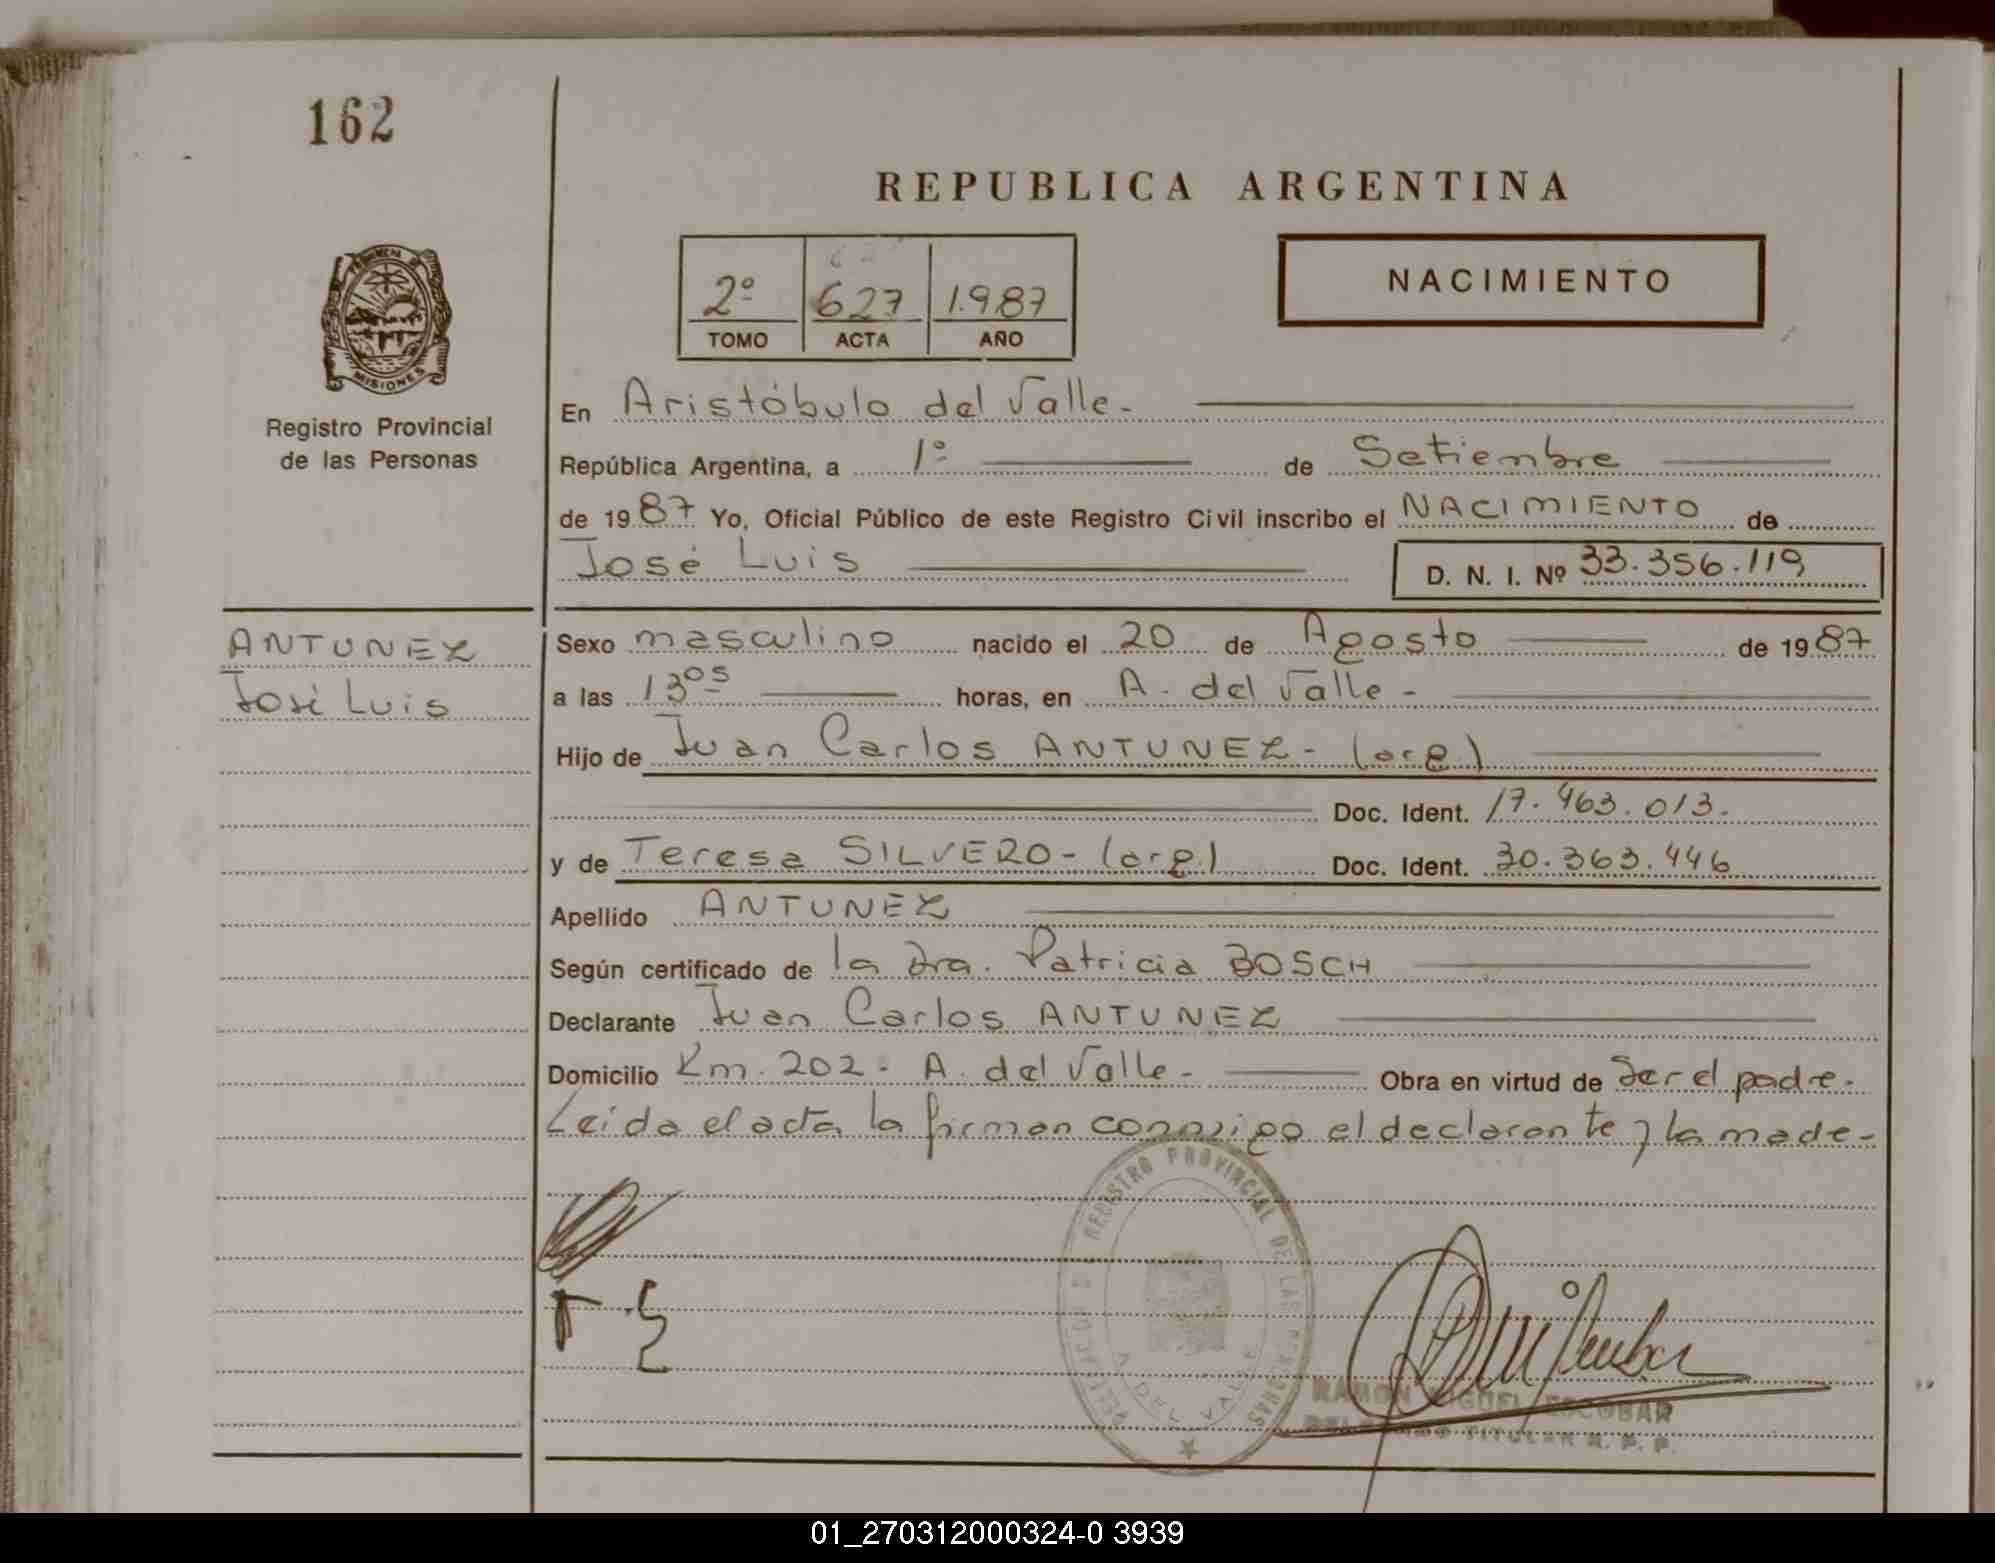 162
REPUBLICA ARGENTINA
PROVINCIA DE
MISIONES
Registro Provincial
de las Personas
2º 627 1.987
TOMO ACTA AÑO
NACIMIENTO
En Aristóbulo del Valle.-
República Argentina, a 1º de Setiembre
de 1987 Yo, Oficial Público de este Registro Civil inscribo el NACIMIENTO de
José Luis D. N. I. Nº 33.356.119
ANTUNEZ
José Luis
Sexo masculino nacido el 20 de Agosto de 1987
a las 13⁰⁵ horas, en A. del Valle -
Hijo de Juan Carlos ANTUNEZ - (arg.)
Doc. Ident. 17.463.013.
y de Teresa SILVERO - (arg.) Doc. Ident. 30.363.446
Apellido ANTUNEZ
Según certificado de la Dra. Patricia BOSCH
Declarante Juan Carlos ANTUNEZ
Domicilio Km. 202. A. del Valle - Obra en virtud de Ser el padre.
Leída el acta la firman conmigo el declarante y la made-
REGISTRO PROVINCIAL DE LAS PERSONAS
A. DEL VALLE
RAMON MIGUEL ESCOBAR
DELEGADO TITULAR R. P. P.
01_270312000324-0 3939